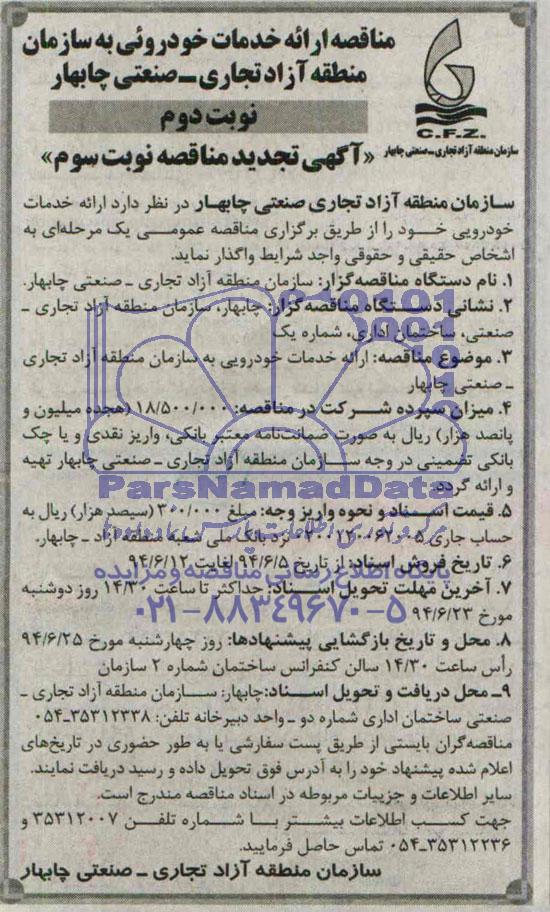 مناقصه ارائه خدمات خودروئی به سازمان
منطقه آزاد تجاری ـ صنعتی چابهار
نوبت دوم
C.F.Z.
سازمان منطقه آزاد تجاری ـ صنعتی چابهار
«آگهی تجدید مناقصه نوبت سوم»
سازمان منطقه آزاد تجاری صنعتی چابهار در نظر دارد ارائه خدمات
خودرویی خود را از طریق برگزاری مناقصه عمومی یک مرحله‌ای به
اشخاص حقیقی و حقوقی واجد شرایط واگذار نماید.
۱. نام دستگاه مناقصه‌گزار: سازمان منطقه آزاد تجاری ـ صنعتی چابهار.
۲. نشانی دستگاه مناقصه‌گزار: چابهار، سازمان منطقه آزاد تجاری ـ
صنعتی، ساختمان اداری، شماره یک
۳. موضوع مناقصه: ارائه خدمات خودرویی به سازمان منطقه آزاد تجاری
ـ صنعتی چابهار
۴. میزان سپرده شرکت در مناقصه: ۱۸/۵۰۰/۰۰۰ (هجده میلیون و
پانصد هزار) ریال به صورت ضمانت‌نامه معتبر بانکی، واریز نقدی و یا چک
بانکی تضمینی در وجه سازمان منطقه آزاد تجاری ـ صنعتی چابهار تهیه
و ارائه گردد.
ParsNamadData
۵. قیمت اسناد و نحوه واریز وجه: مبلغ ۳۰۰/۰۰۰ (سیصد هزار) ریال به
حساب جاری نزد بانک ملی شعبه منطقه آزاد ـ چابهار.
۶. تاریخ فروش اسناد: از تاریخ ۹۴/۶/۵ لغایت ۹۴/۶/۱۲
پایگاه اطلاع رسانی مناقصه و مزایده
۷. آخرین مهلت تحویل اسناد: حداکثر تا ساعت ۱۴/۳۰ روز دوشنبه
مورخ ۹۴/۶/۲۳
۰۲۱-۸۸۳۴۹۶۷۰-۵
۸. محل و تاریخ بازگشایی پیشنهادها: روز چهارشنبه مورخ ۹۴/۶/۲۵
رأس ساعت ۱۴/۳۰ سالن کنفرانس ساختمان شماره ۲ سازمان
۹ـ محل دریافت و تحویل اسناد: چابهار: سازمان منطقه آزاد تجاری ـ
صنعتی ساختمان اداری شماره دو ـ واحد دبیرخانه تلفن: ۳۵۳۱۲۳۳۸ـ۰۵۴
مناقصه‌گران بایستی از طریق پست سفارشی یا به طور حضوری در تاریخ‌های
اعلام شده پیشنهاد خود را به آدرس فوق تحویل داده و رسید دریافت نمایند.
سایر اطلاعات و جزییات مربوطه در اسناد مناقصه مندرج است.
جهت کسب اطلاعات بیشتر با شماره تلفن ۳۵۳۱۲۰۰۷ و
۳۵۳۱۲۲۳۶ـ۰۵۴ تماس حاصل فرمایید.
سازمان منطقه آزاد تجاری ـ صنعتی چابهار